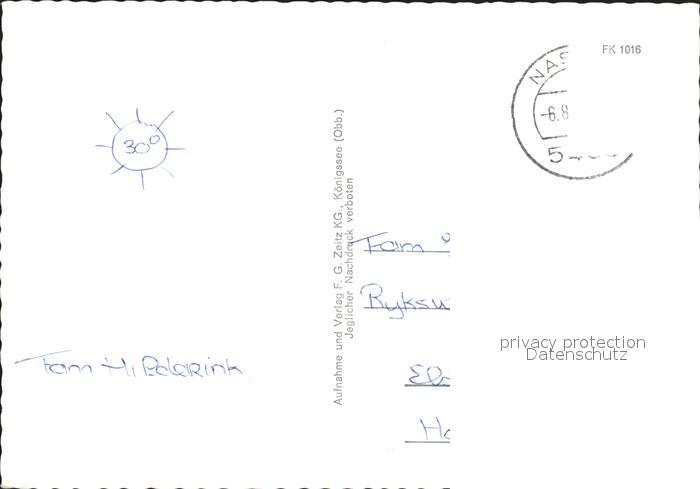 FK 1016
NAS
-6.8
5
30°
Aufnahme und Verlag F. G. Zeitz KG., Königssee (Obb.)
Jeglicher Nachdruck verboten
Fam
Ryksw
privacy protection
Datenschutz
Fam Hilderink
Ho